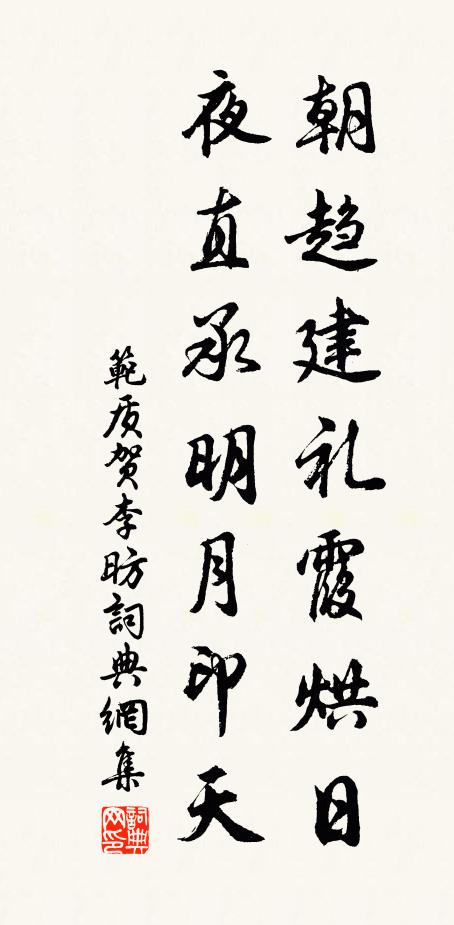 朝趋建礼霞烘日
夜直承明月印天
範质贺李昉詞典網集
詞典网印